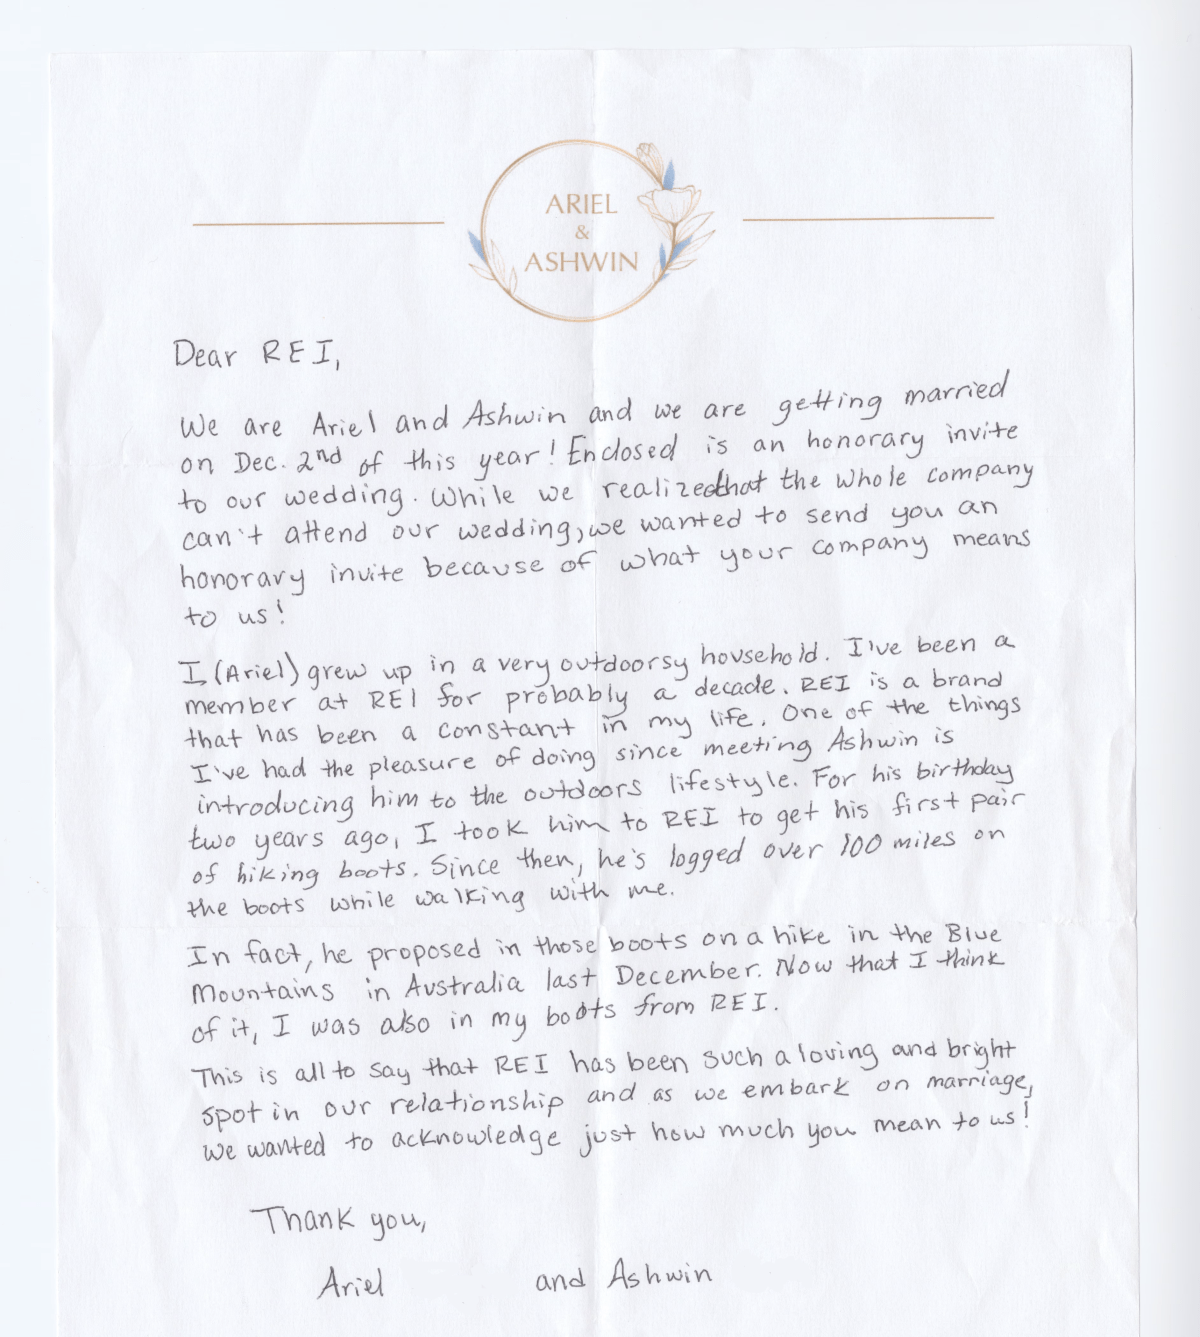 ARIEL
&
ASHWIN
Dear REI,
We are Ariel and Ashwin and we are getting married
on Dec. 2nd of this year! Enclosed is an honorary invite
to our wedding. While we realize that the whole company
can't attend our wedding, we wanted to send you an
honorary invite because of what your company means
to us!
I (Ariel) grew up in a very outdoorsy household. I've been a
member at REI for probably a decade. REI is a brand
that has been a constant in my life. One of the things
I've had the pleasure of doing since meeting Ashwin is
introducing him to the outdoors lifestyle. For his birthday
two years ago, I took him to REI to get his first pair
of hiking boots. Since then, he's logged over 100 miles on
the boots while walking with me.
In fact, he proposed in those boots on a hike in the Blue
Mountains in Australia last December. Now that I think
of it, I was also in my boots from REI.
This is all to say that REI has been such a loving and bright
spot in our relationship and as we embark on marriage,
we wanted to acknowledge just how much you mean to us!
Thank you,
Ariel and Ashwin